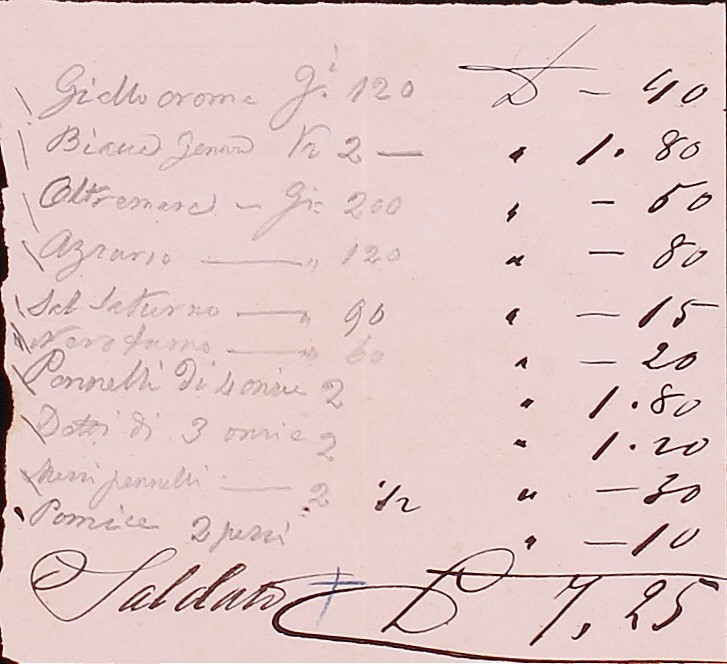 Giallo crome Gi 120 £ - 40
Biacca Genova K 2 — " 1. 80
Oltremare - Gi 200 " - 50
" 120 " - 80
Sal Saturno — " 90 " - 15
Nero fumo — " 60 " - 20
Pennelli di 4 oncie 2 " 1. 80
Detti di 3 oncie 2 " 1. 20
Mezzi pennelli — 2 1/2 " - 30
Pomice 2 pezzi " - 10
Saldato £ 7, 25